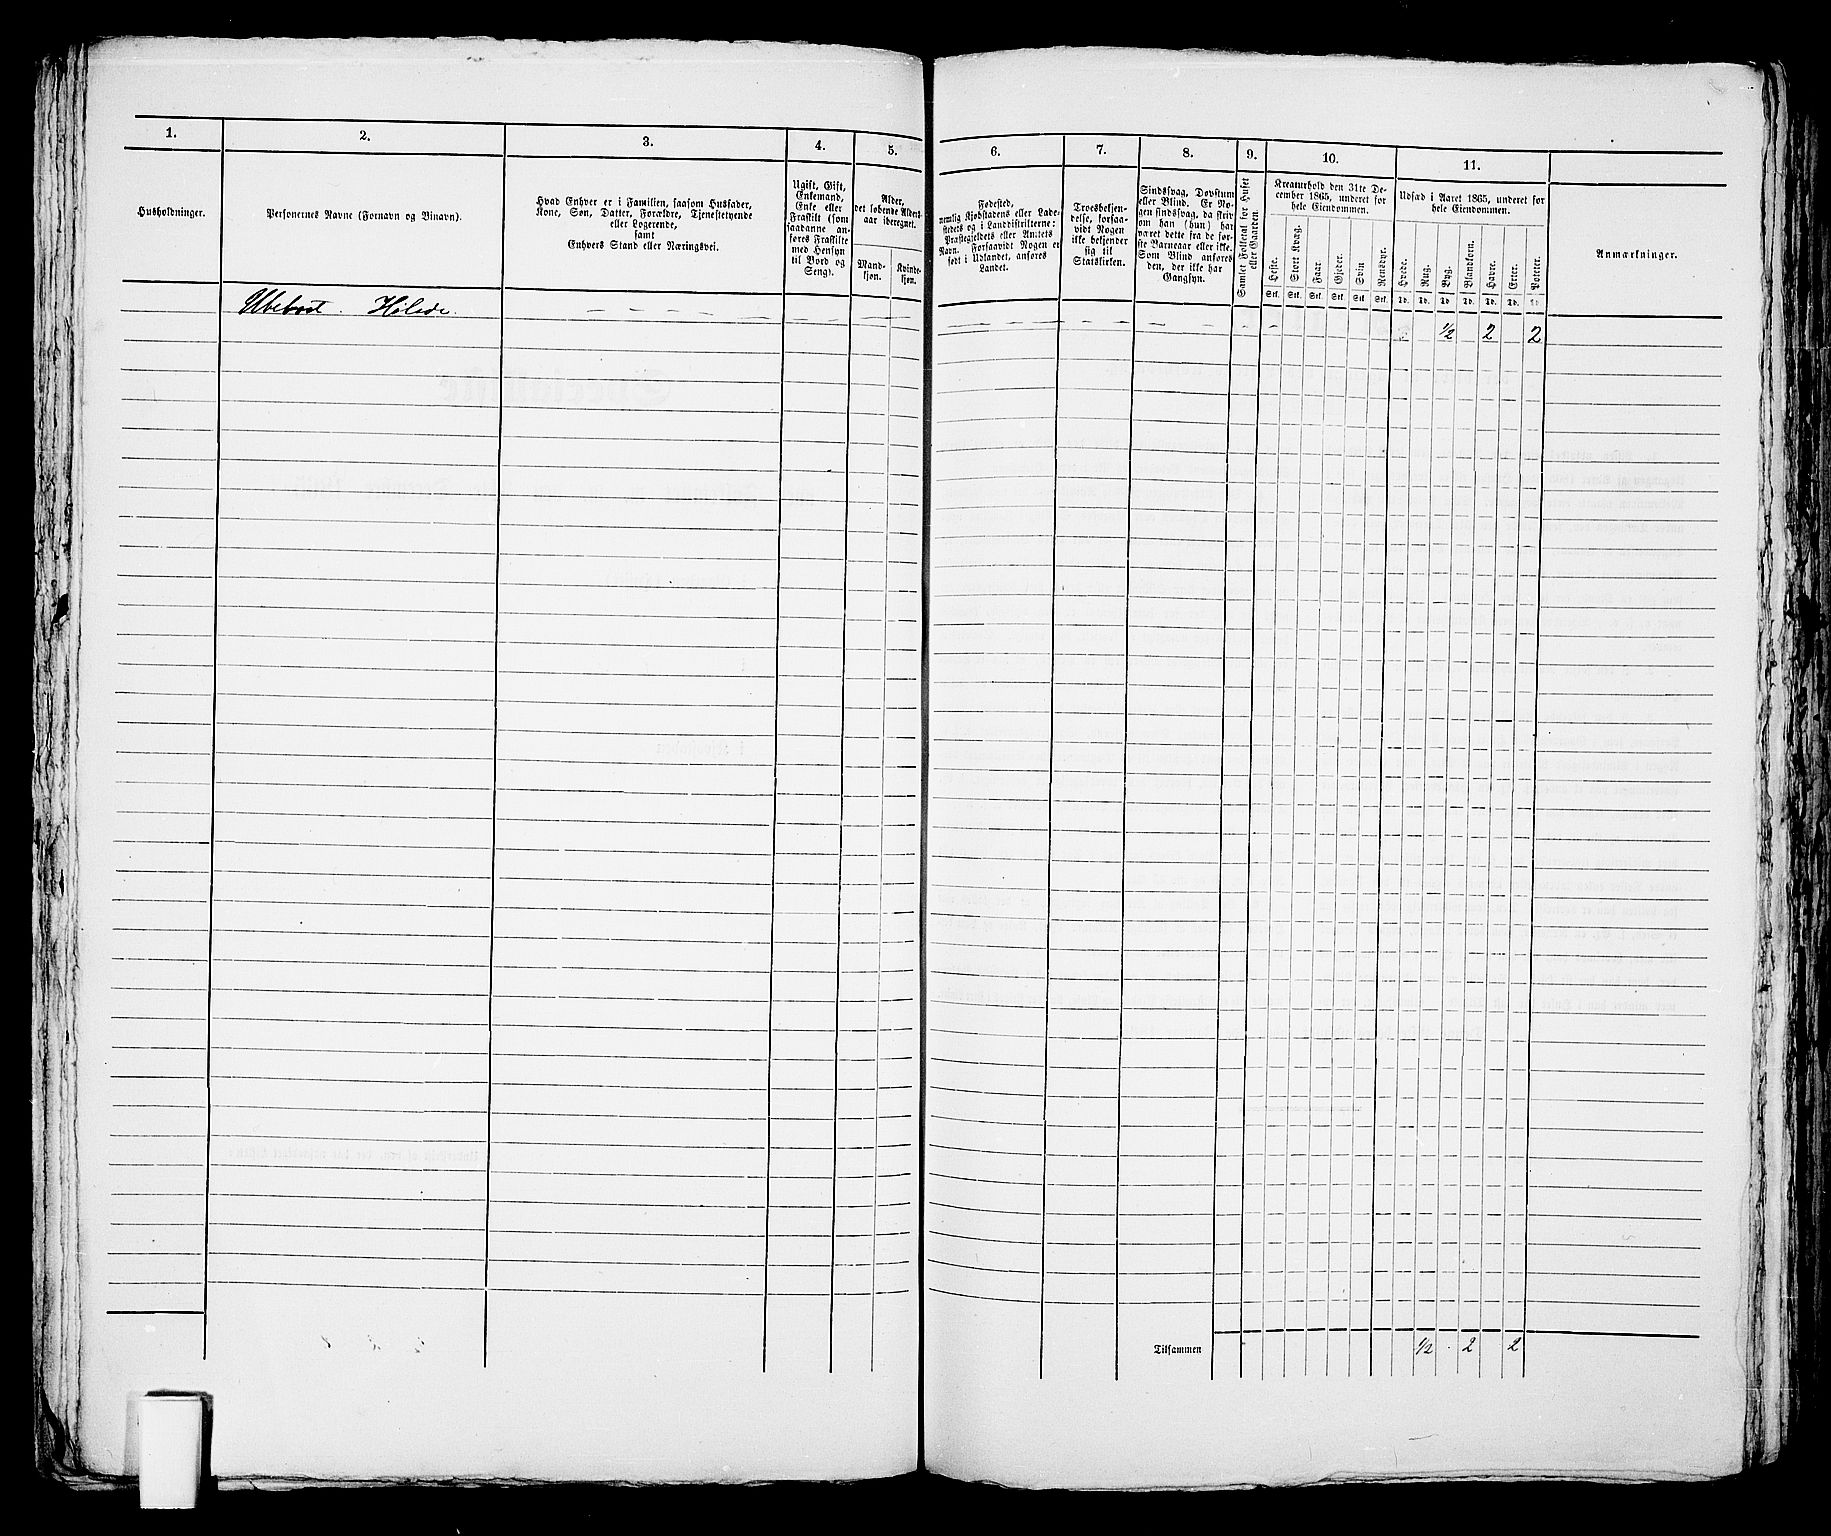 1.
2.
3.
4.
5.
6.
7.
8.
9.
10.
11.
Husholdninger.
Personernes Navne (Fornavn og Binavn).
Hvad Enhver er i Familien, saasom Husfader,
Kone, Søn, Datter, Forældre, Tjenestetyende
eller Logerende,
samt
Enhvers Stand eller Næringsvei.
Ugift, Gift,
Enkemand,
Enke eller
Fraskilt (som
saadanne an-
føres Fraskilte
med Hensyn
til Bord og
Seng).
Alder,
det løbende Alders-
aar iberegnet.
Mand-
kjøn.
Kvinde-
kjøn.
Fødested,
nemlig Kjøbstadens eller Lade-
stedets og i Landdistrikterne:
Præstegjeldets eller Amtets
Navn. Forsaavidt Nogen er
født i Udlandet, anføres
Landet.
Troesbekjen-
delse, forsaa-
vidt Nogen
ikke bekjender
sig til
Statskirken.
Sindssvag, Døvstum
eller Blind. Er No-
gen sindssvag, da skriv
om han (hun) har
været dette fra de før-
ste Barneaar eller ikke.
Som Blind anføres
den, der ikke har
Gangsyn.
Samlet Folketal for Huset
eller Gaarden.
Kreaturhold den 31te De-
cember 1865, underet for
hele Eiendommen.
Heste.
Stort Kvæg.
Faar.
Gjeder.
Svin
Rensdyr.
Stk. Stk. Stk. Stk. Stk. Stk.
Udsæd i Aaret 1865, underet for
hele Eiendommen.
Hvede.
Rug.
Byg.
Blandkorn.
Havre.
Erter.
Poteter.
Td. Td. Td Td. Td. Td. Td
Anmærkninger.
Ubebod. – – – – – – – – – – – ½ 2 2
Tilsammen ½ 2 2